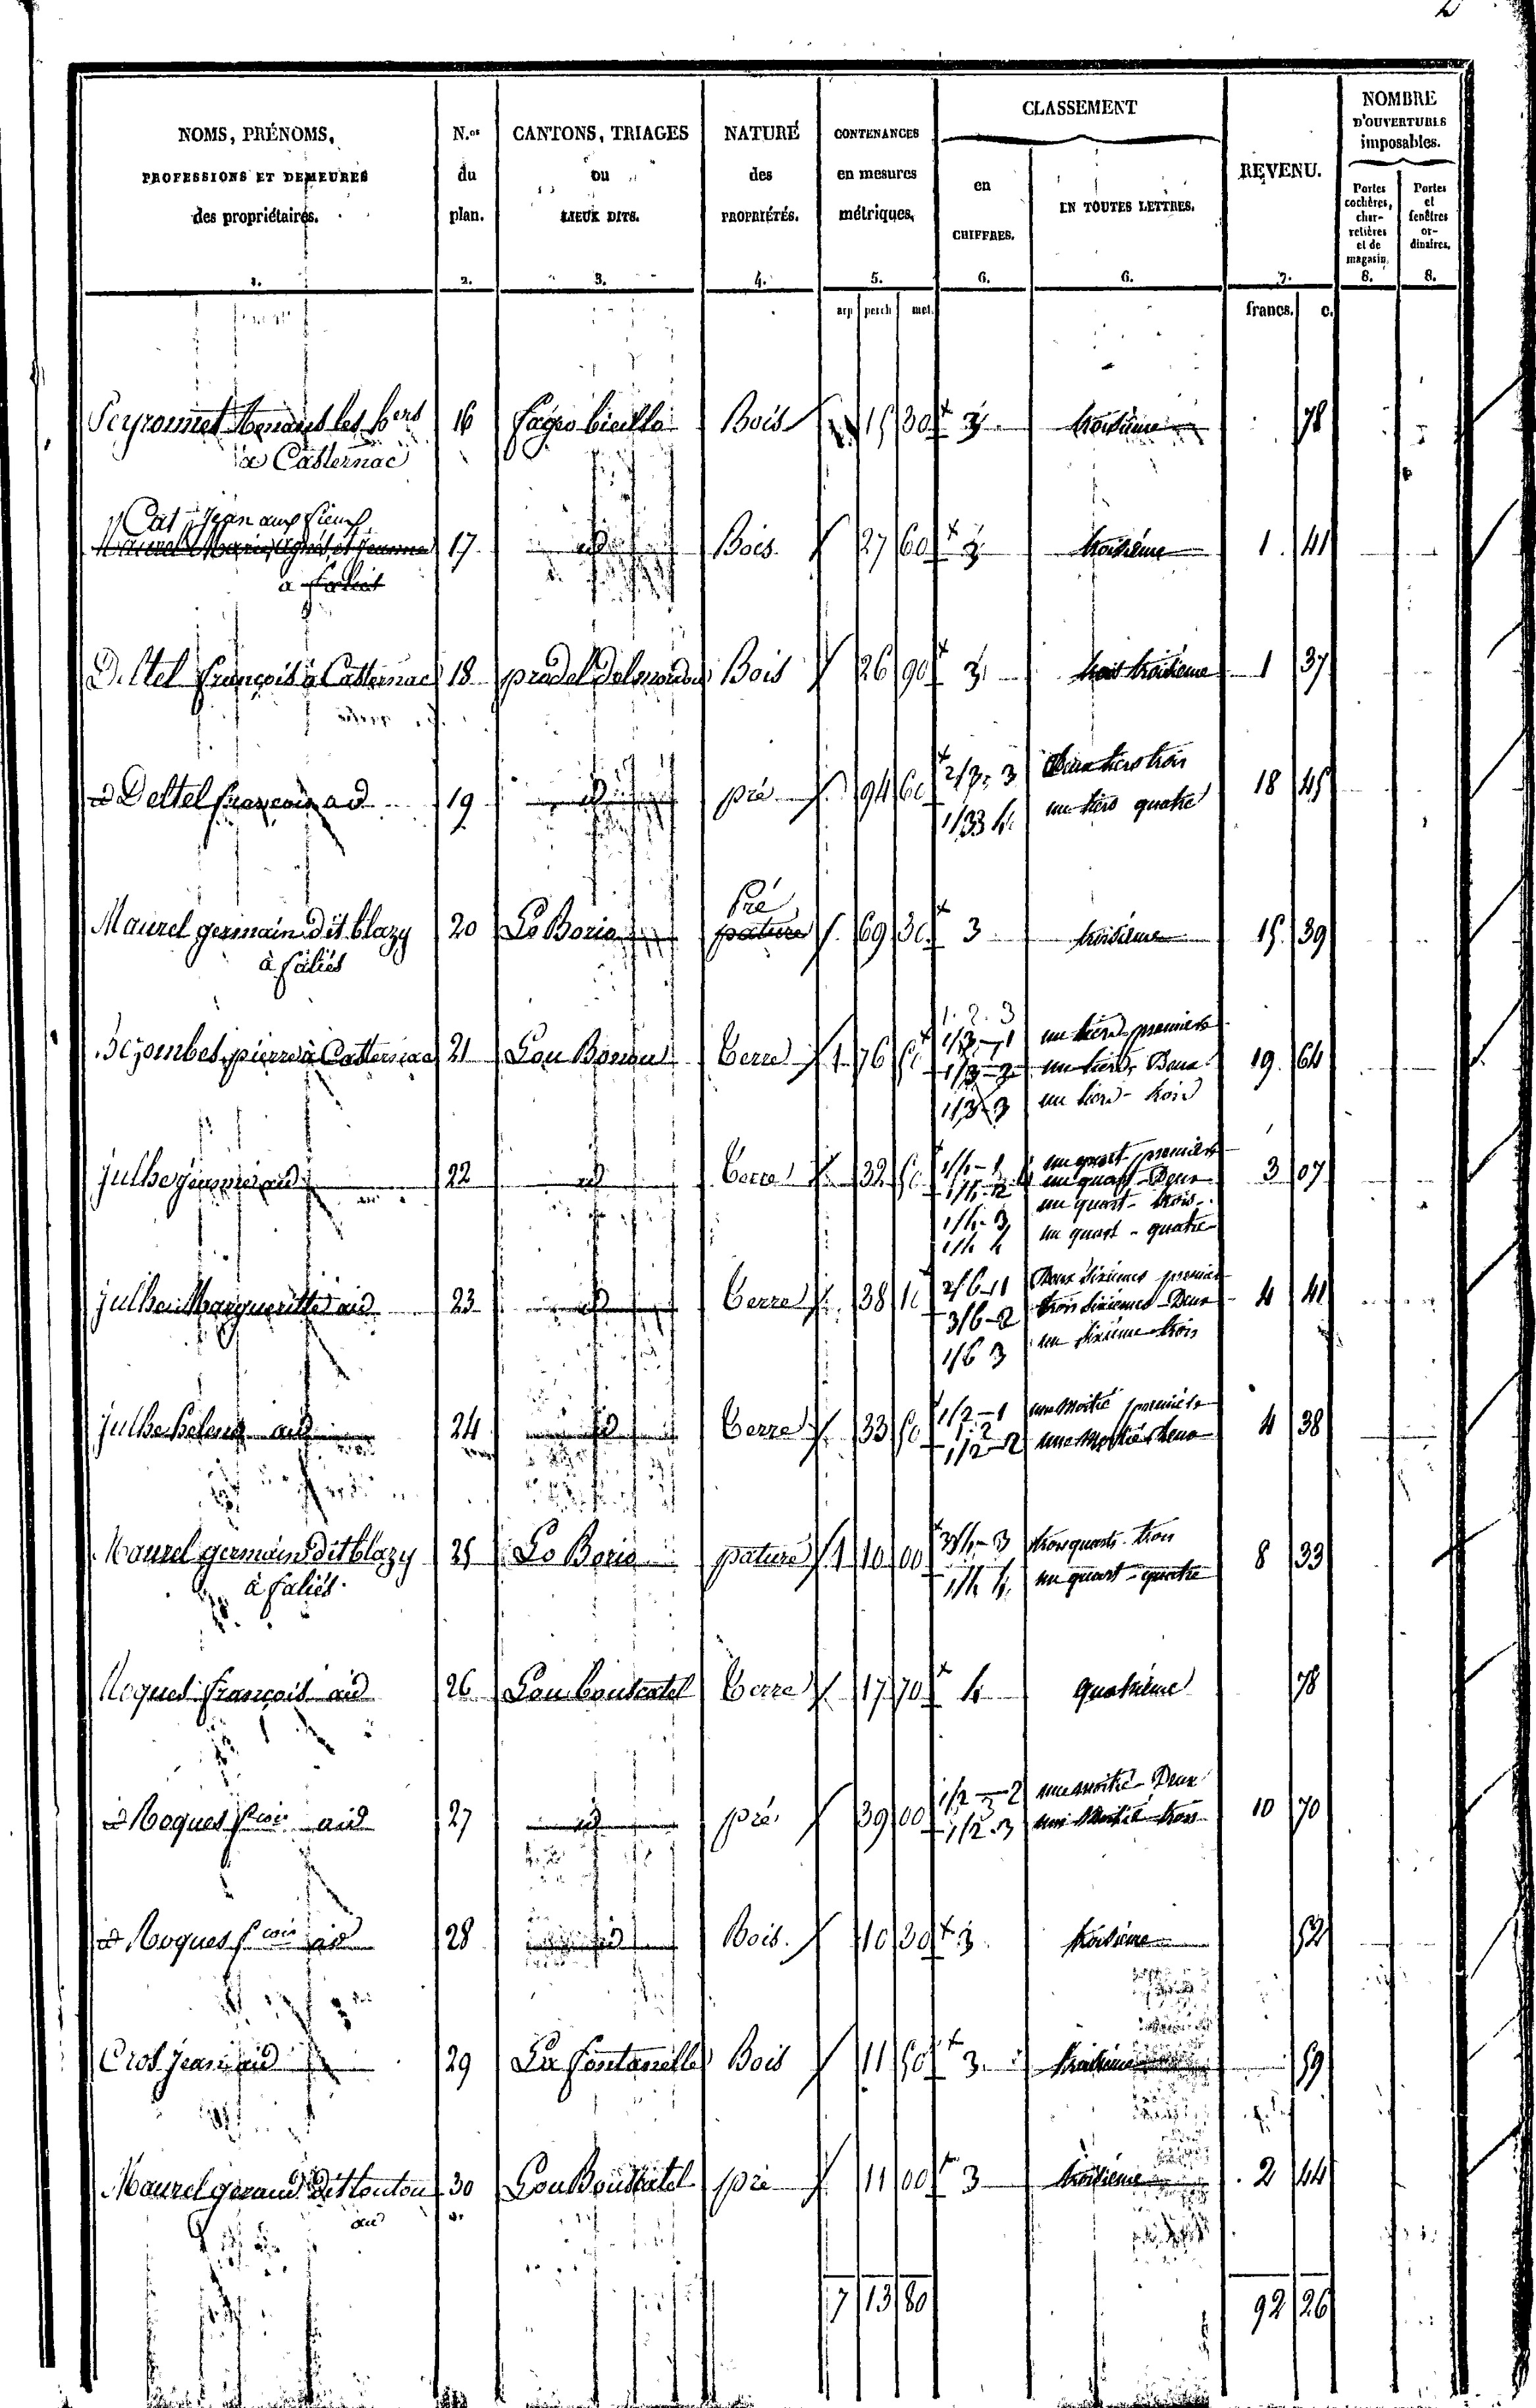 NOMS, PRÉNOMS, PROFESSIONS ET DEMEURES des propriétaires. 1.
N.os du plan. 2.
CANTONS, TRIAGES ou LIEUX DITS. 3.
NATURE des PROPRIÉTÉS. 4.
CONTENANCES en mesures métriques. 5.
CLASSEMENT
en CHIFFRES. 6.
EN TOUTES LETTRES. 6.
REVENU. 7.
NOMBRE D'OUVERTURES imposables.
Portes cochères, charretières et de magasin. 8.
Portes et fenêtres ordinaires. 8.
arp perch met. francs. c.
les hers 16 Bois 15 30 3 troisième 78
à Casternac
Cat Jean aux
17 id Bois 27 60 3 troisième 1 41
à
Deltel françois à Casternac 18 Bois 26 90 3 troisième 1 37
id Deltel françois id 19 id pré 94 60 2/3 3 Deux tiers trois 18 45
1/3 4 un tiers quatre
Pré
Maurel germain dit blazy 20 Lo Borio pature 69 30 3 troisième 15 39
à faliés
1. 2. 3
pierre à Casternac 21 Lou Terre 1 76 50 1/3 - 1 un tiers premiere 19 64
1/3 - 2 un tiers Deux
1/3 - 3 un tiers - trois
Julhe id 22 id Terre 32 50 1/4 - 1 un quart premiere 3 07
1/4 - 2 un quart - Deux
1/4 - 3 un quart - trois
1/4 4 un quart - quatre
Julhe Margueritte id 23 id Terre 38 10 2/6 - 1 Deux sixièmes premiere 4 41
3/6 - 2 trois sixièmes - Deux
1/6 3 un sixième trois
Julhe helene id 24 id Terre 33 50 1/2 - 1 une Moitié premiére 4 38
1. 2
1/2 - 2 une Moitié Deux
Maurel germain dit blazy 25 Lo Borio pature 1 10 00 3/4 - 3 trois quarts trois 8 33
à faliés 1/4 4 un quart - quatre
Roques françois id 26 Lou bouscatel Terre 17 70 4 quatrième 78
id Roques fcois id 27 id pré 39 00 1/2 - 2 une moitié Deux 10 70
1/2 - 3 une Moitié trois
id Roques fcois id 28 id Bois 10 30 3 troisième 52
Cros Jean id 29 La fontanelle Bois 11 50 3 troisième 59
Maurel geraud dit toutou 30 Lou Bouscatel pré 11 00 3 troisième 2 44
id
7 13 80 92 26